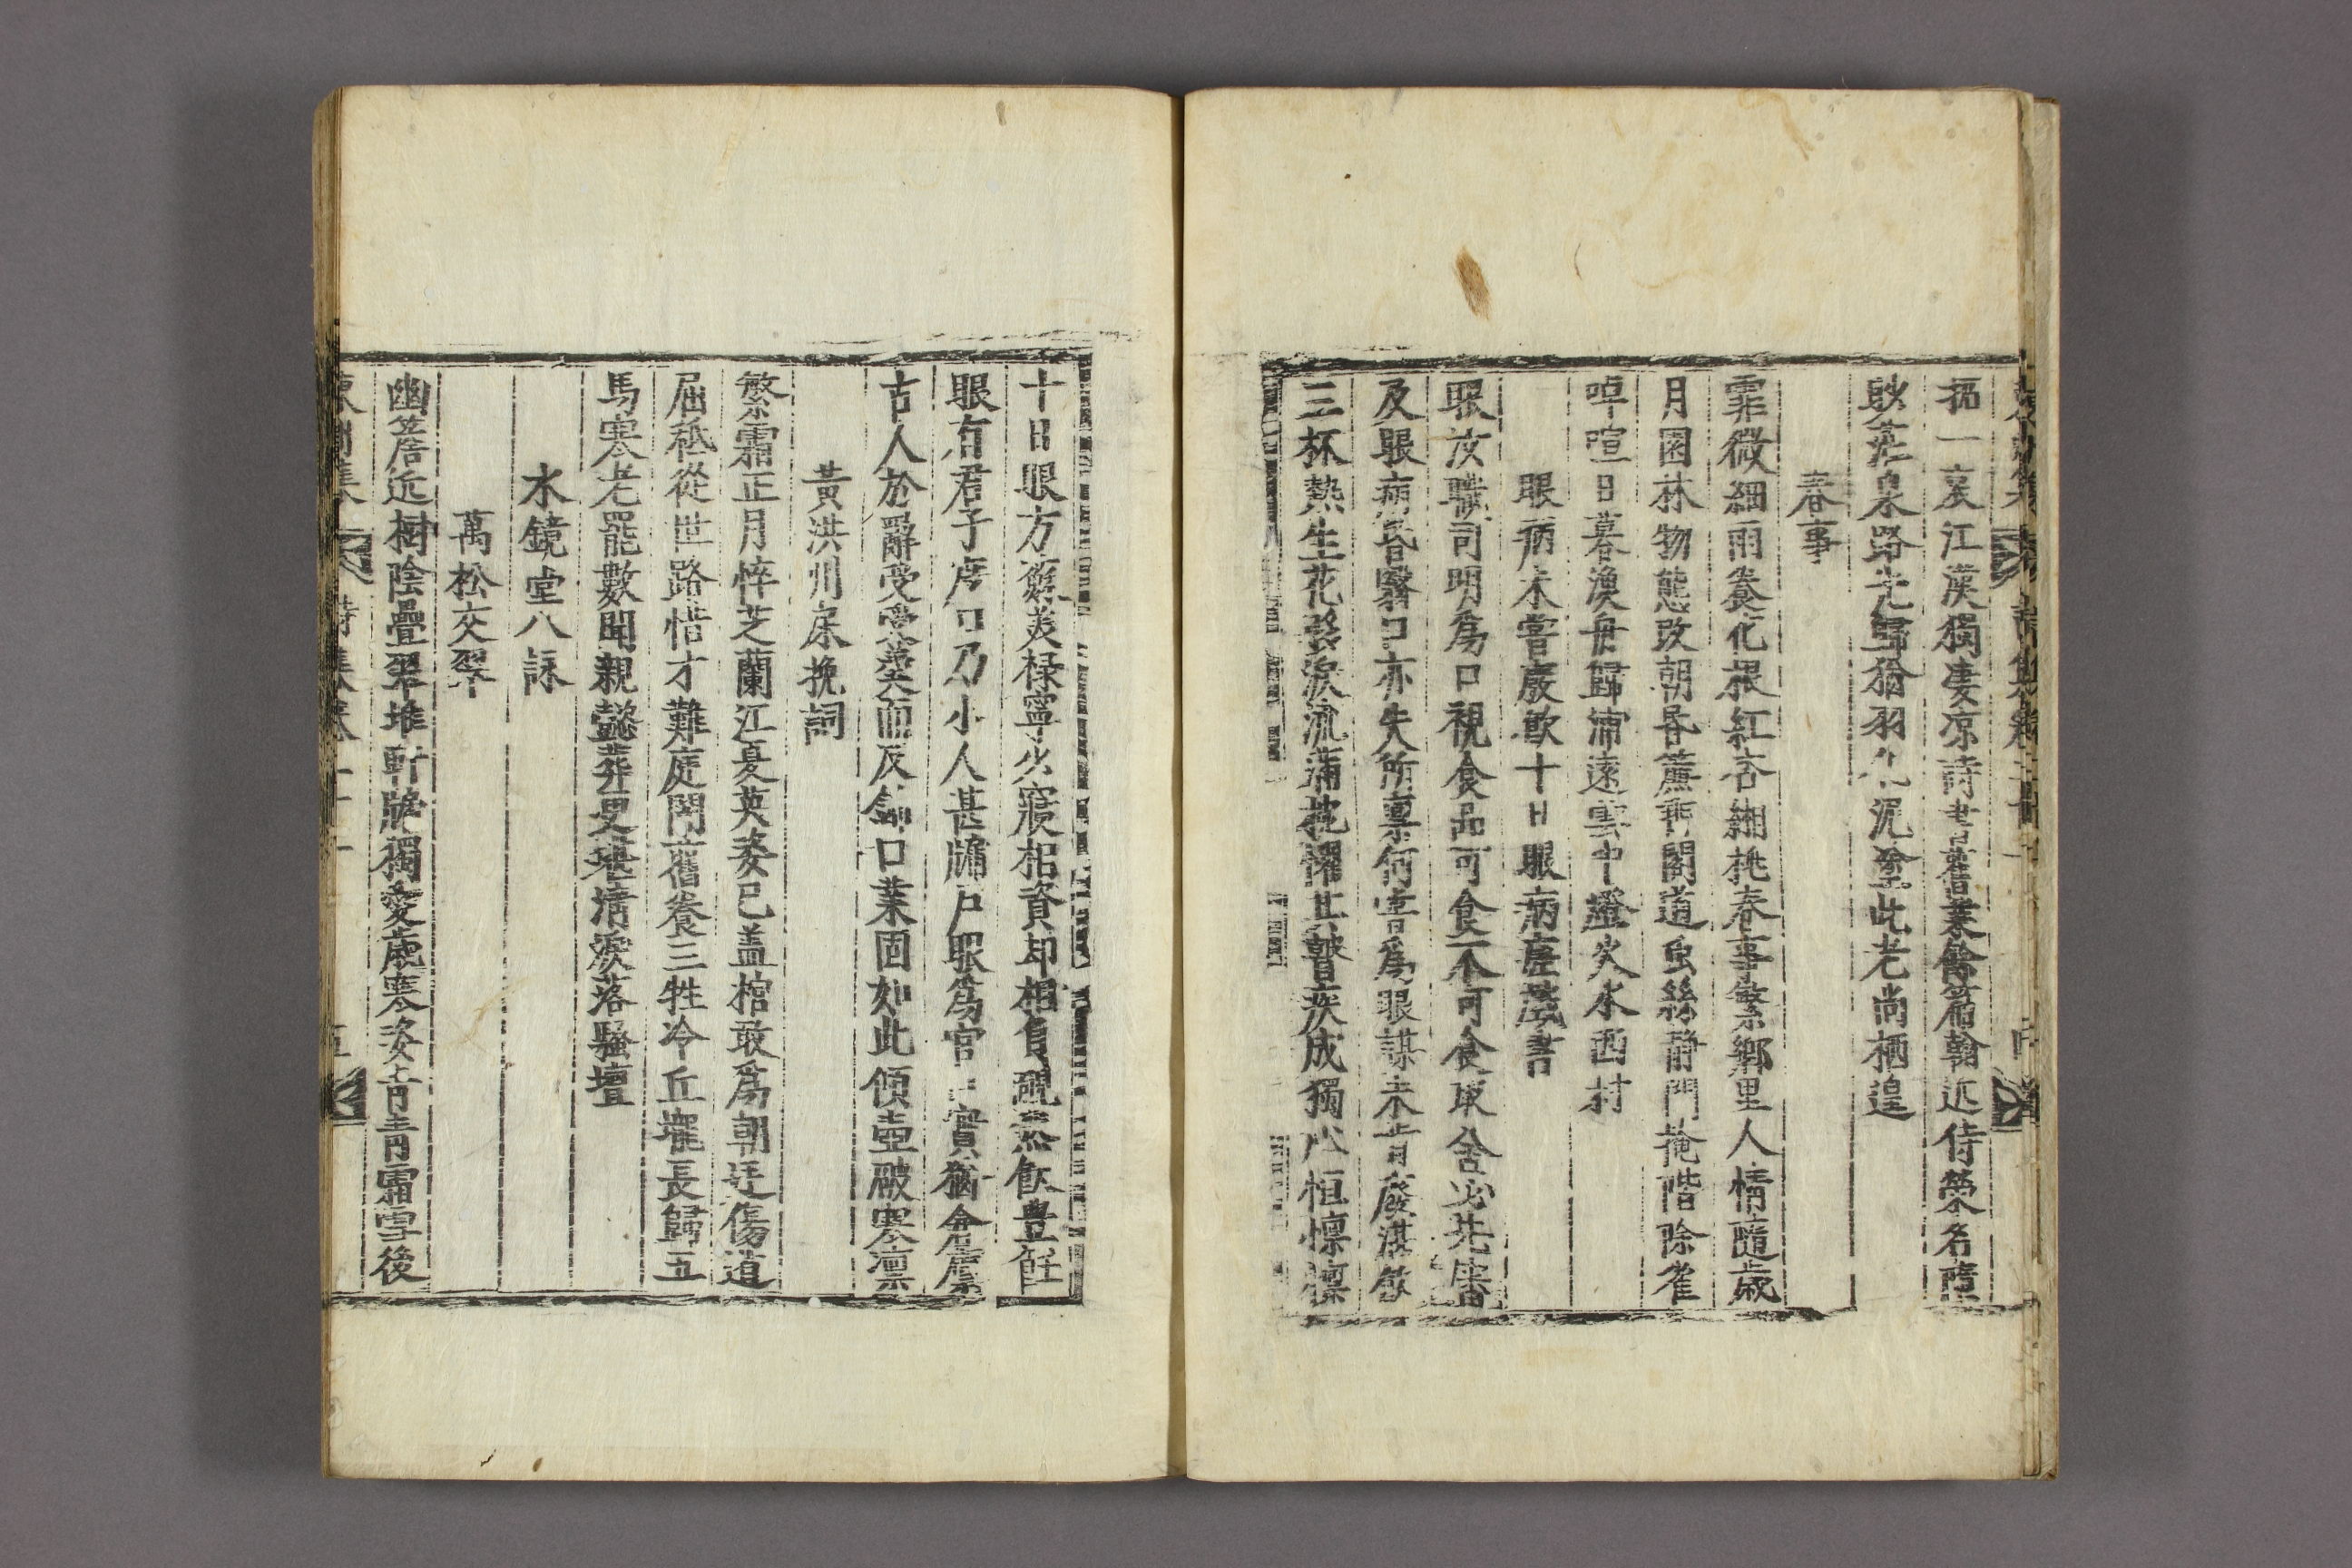 一衰江漢獨凄凉詩書舊業餘篇翰近侍榮名隨
路先歸猶羽化泥塗此老尚栖遑
春事
霏微細雨養化根紅杏緗桃春事繁鄉里人情隨歲
月園林物態改朝昏簾前閣道虫絲靜門掩階除雀
啅喧日暮漁舟歸浦遠雲中燈火水西村
眼病未嘗廢飮十日眼病產戲書
眼汝職司明爲口視食品可食不可食取舍必先審
及眼病昏翳口亦失所稟何害爲眼謀未肯廢湛飮
三杯熱生花發淚流滿枕懼其瞽疾成獨心恒懍懍
十日眼方蘇美祿寧少寢相資却相負烝飮豊飪
眼有君子度口乃小人甚牖戶眼爲官口實猶含廩
古人於辭受受羹而反錦口業固如此傾壺破寒凛
黃洪州床挽詞
繁霜正月悴芝蘭江夏英姿已盖棺敢爲朝廷傷道
屈秪從世路惜才難庭闈舊養三牲冷丘壠長歸五
馬寒老罷數聞親懿葬更堪淸淚落騷壇
水鏡堂八詠
萬松交翠
幽簷近樹陰疊翠堆軒牕獨愛歲寒姿靑靑霜雪後